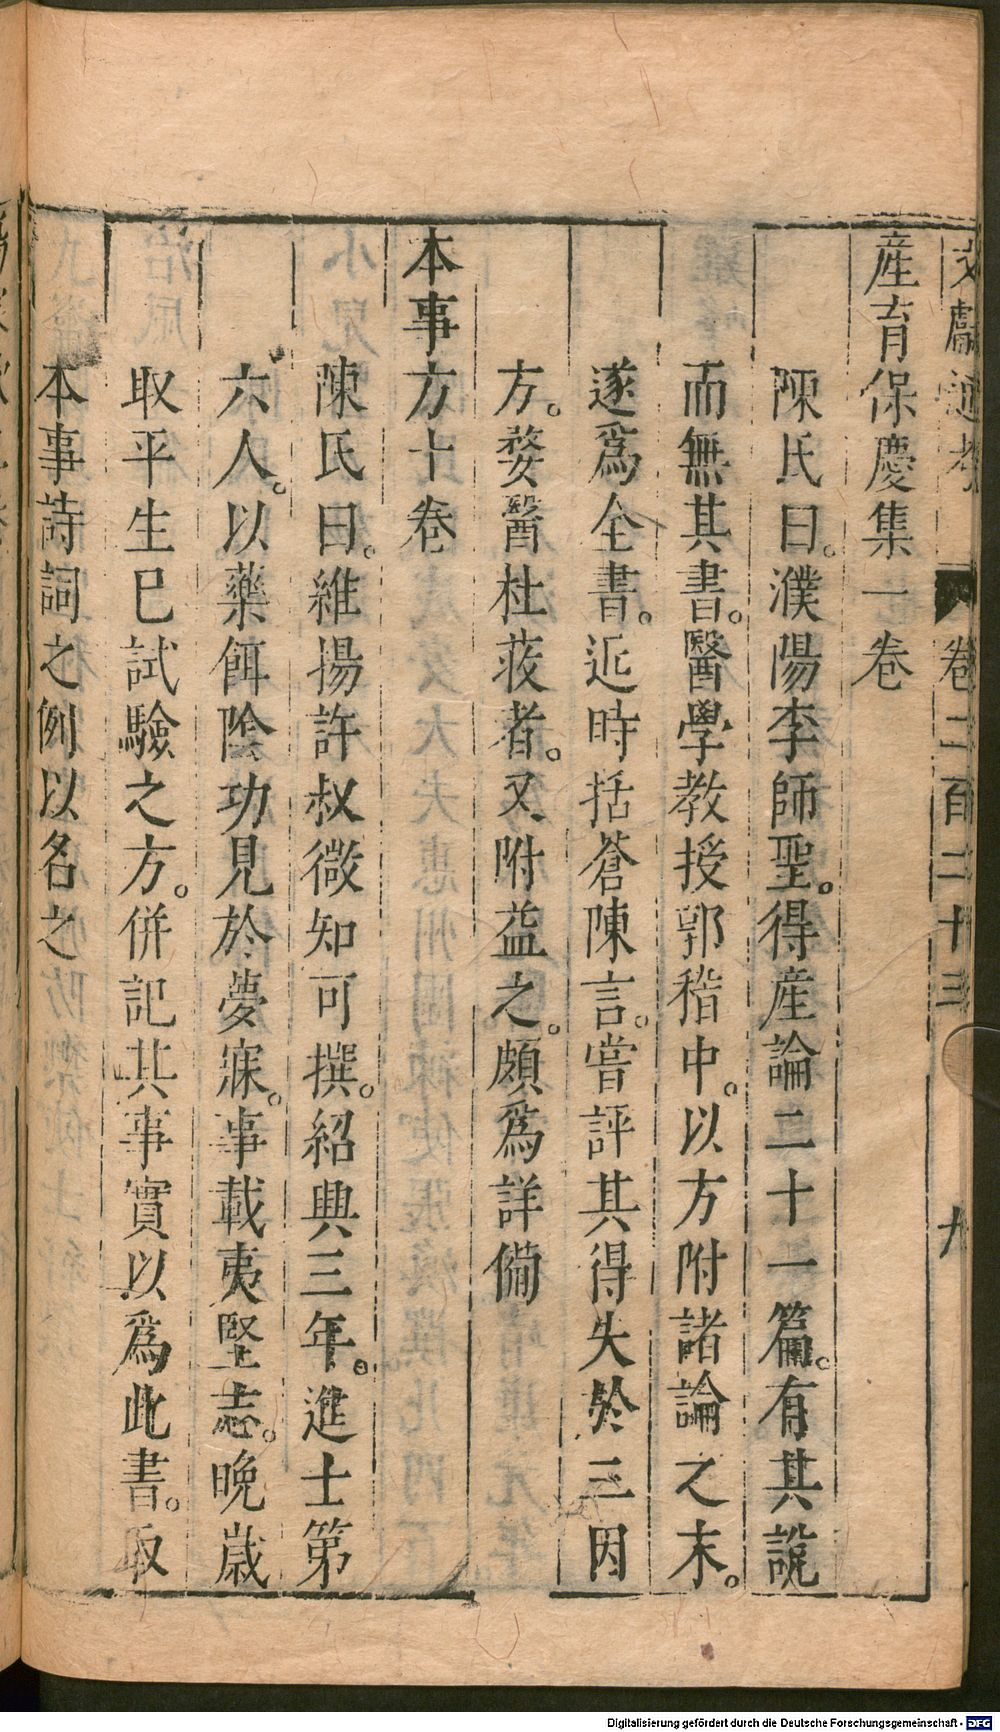 文獻通考 卷二百二十三 九
産育保慶集一卷
陳氏曰。濮陽李師聖。得産論二十一篇。有其說
而無其書。醫學教授郭稽中。以方附諸論之末。
遂爲全書。近時括蒼陳言。嘗評其得失於三因
方。婺醫杜荍者。又附益之。頗爲詳備
本事方十卷
陳氏曰。維揚許叔微知可撰。紹興三年。進士第
六人。以藥餌陰功見於夢寐。事載夷堅志。晚歲
取平生已試驗之方。併記其事實以爲此書。取
本事詩詞之例以名之
Digitalisierung gefördert durch die Deutsche Forschungsgemeinschaft - DFG